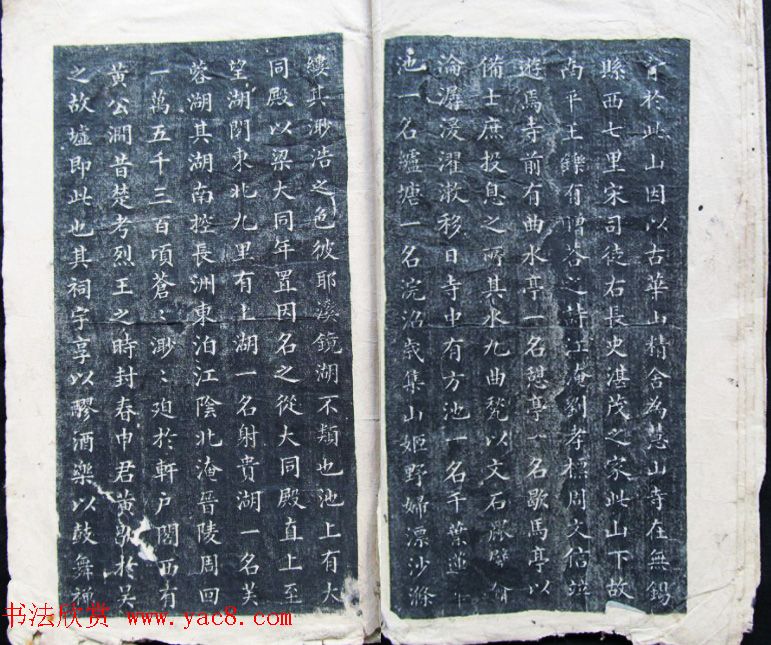 於此山因以古華山精舍為慧山寺在無錫
縣西七里宋司徒右長史湛茂之家此山下故
南平王鑠有贈荅之詩江淹劉孝標周文信竝
遊焉寺前有曲水亭一名憩亭一名歇馬亭以
備士庶投息之所其水九曲甃以文石
淪漣濅濯漱移日寺中有方池一名千葉蓮
池一名纑塘一名浣沼歲集山姬野婦漂沙滌
縷其渺浩之色彼耶溪鏡湖不類也池上有大
同殿以梁大同年置因名之從大同殿直上至
望湖閣東北九里有上湖一名射貴湖一名芙
蓉湖其湖南控長洲東泊江陰北淹晉陵周回
一萬五千三百頃蒼〻渺〻迫於軒戶閣西有
黄公澗昔楚考烈王之時封春申君黄歇於吴
之故墟即此也其祠宇享以醪酒樂以鼓舞禪
书法欣赏 www.yac8.com